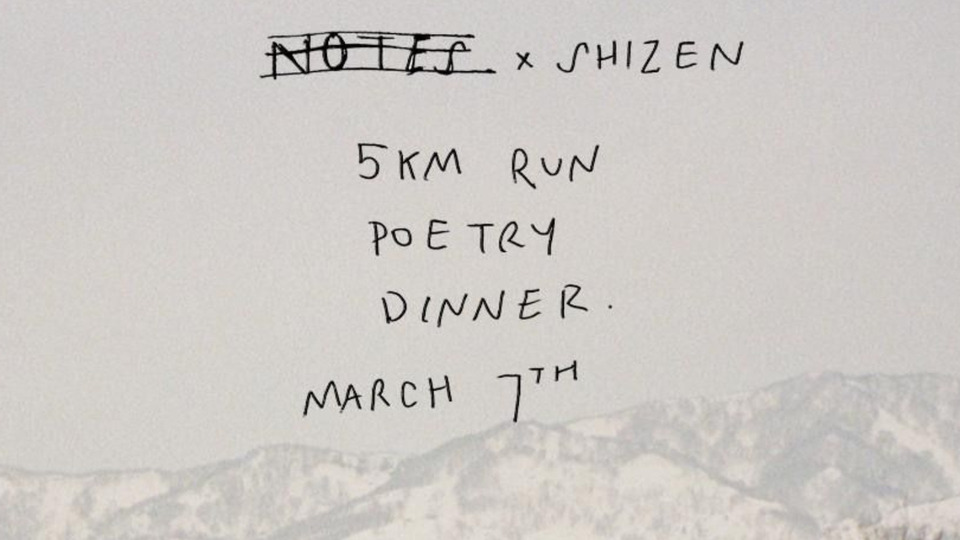 NOTES x SHIZEN
5KM RUN
POETRY
DINNER.
MARCH 7TH